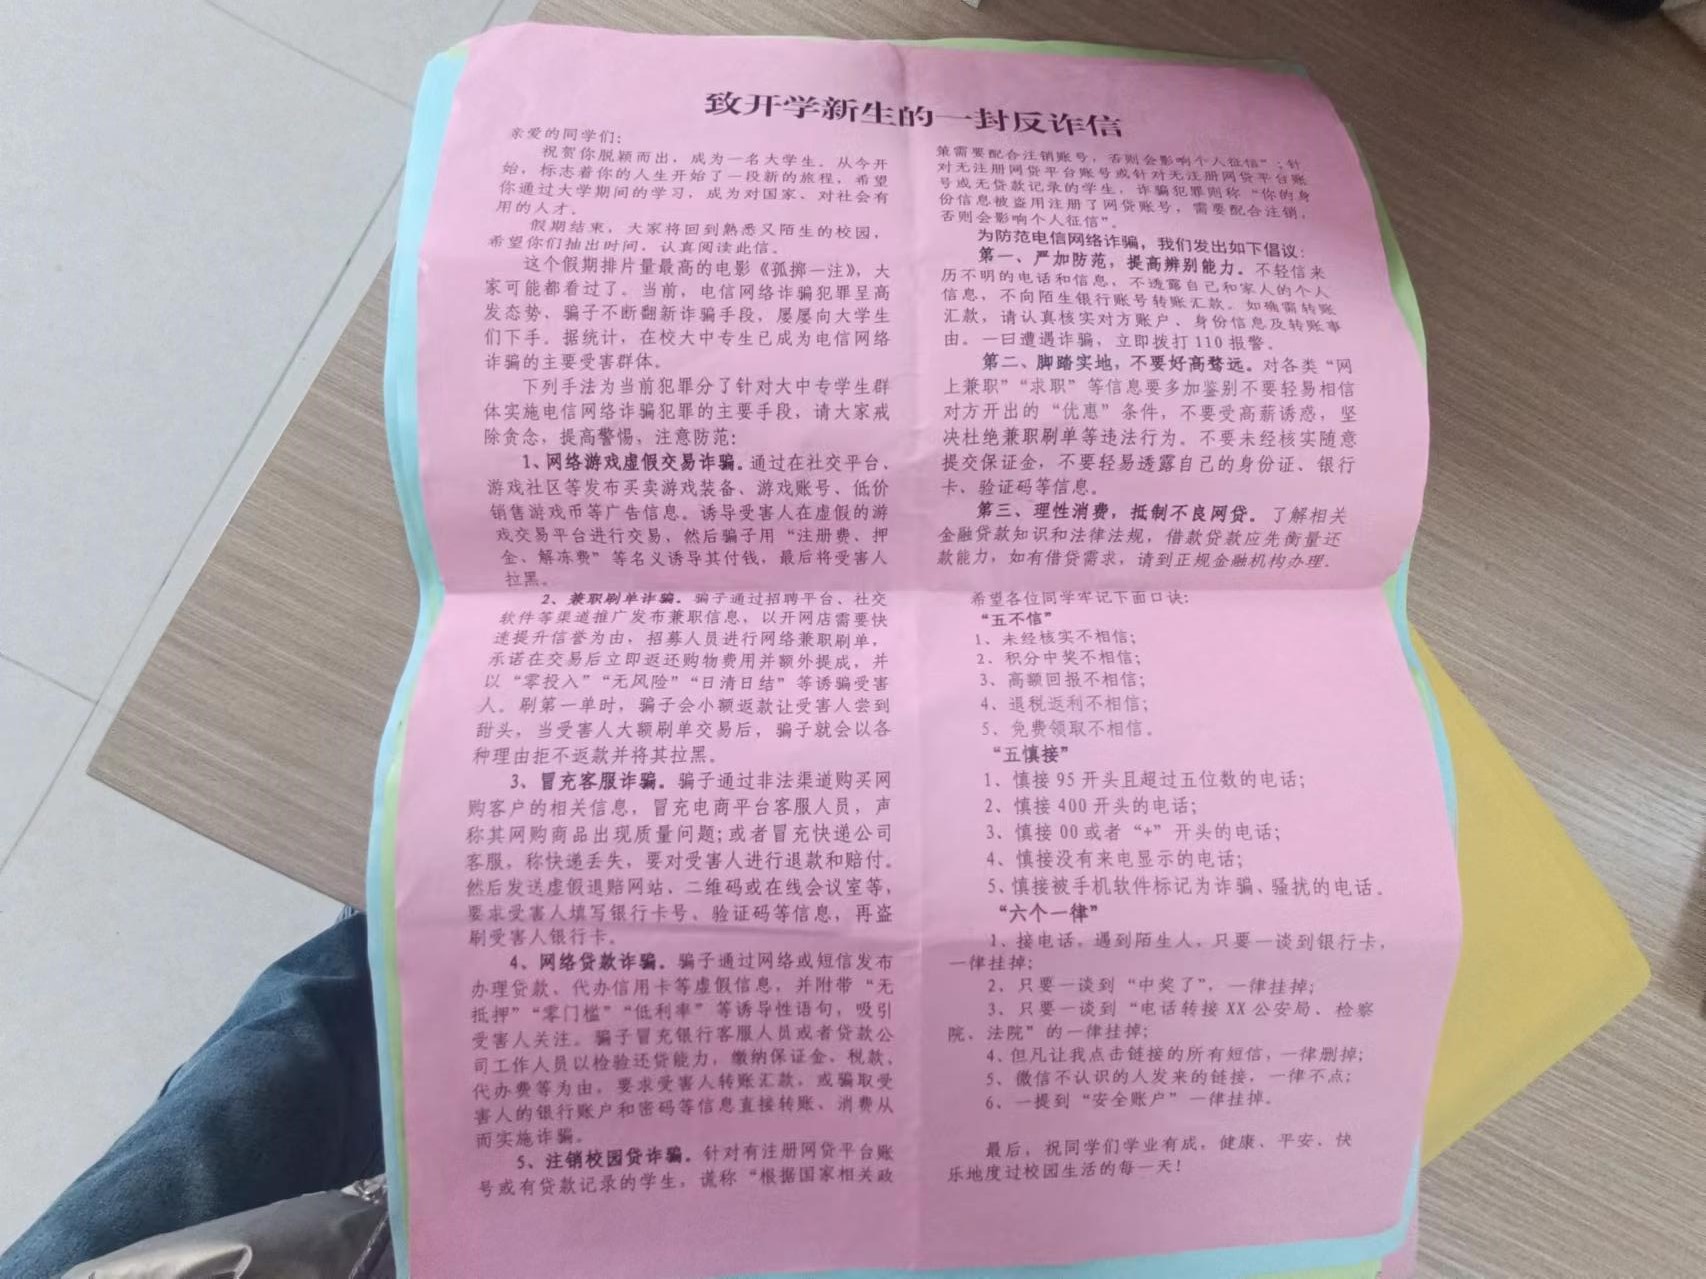 致开学新生的一封反诈信
亲爱的同学们：
祝贺你脱颖而出，成为一名大学生。从今开
始，标志着你的人生开始了一段新的旅程，希望
你通过大学期间的学习，成为对国家、对社会有
用的人才。
假期结束，大家将回到熟悉又陌生的校园，
希望你们抽出时间，认真阅读此信。
这个假期排片量最高的电影《孤掷一注》，大
家可能都看过了。当前，电信网络诈骗犯罪呈高
发态势、骗子不断翻新诈骗手段，屡屡向大学生
们下手。据统计，在校大中专生已成为电信网络
诈骗的主要受害群体。
下列手法为当前犯罪分了针对大中专学生群
体实施电信网络诈骗犯罪的主要手段，请大家戒
除贪念，提高警惕，注意防范：
1、网络游戏虚假交易诈骗。通过在社交平台、
游戏社区等发布买卖游戏装备、游戏账号、低价
销售游戏币等广告信息。诱导受害人在虚假的游
戏交易平台进行交易，然后骗子用“注册费、押
金、解冻费”等名义诱导其付钱，最后将受害人
拉黑。
2、兼职刷单诈骗。骗子通过招聘平台、社交
软件等渠道推广发布兼职信息，以开网店需要快
速提升信誉为由，招募人员进行网络兼职刷单，
承诺在交易后立即返还购物费用并额外提成，并
以“零投入”“无风险”“日清日结”等诱骗受害
人。刷第一单时，骗子会小额返款让受害人尝到
甜头，当受害人大额刷单交易后，骗子就会以各
种理由拒不返款并将其拉黑。
3、冒充客服诈骗。骗子通过非法渠道购买网
购客户的相关信息，冒充电商平台客服人员，声
称其网购商品出现质量问题；或者冒充快递公司
客服，称快递丢失，要对受害人进行退款和赔付。
然后发送虚假退赔网站、二维码或在线会议室等，
要求受害人填写银行卡号、验证码等信息，再盗
刷受害人银行卡。
4、网络贷款诈骗。骗子通过网络或短信发布
办理贷款、代办信用卡等虚假信息，并附带“无
抵押”“零门槛”“低利率”等诱导性语句，吸引
受害人关注。骗子冒充银行客服人员或者贷款公
司工作人员以检验还贷能力，缴纳保证金、税款、
代办费等为由，要求受害人转账汇款，或骗取受
害人的银行账户和密码等信息直接转账、消费从
而实施诈骗。
5、注销校园贷诈骗。针对有注册网贷平台账
号或有贷款记录的学生，谎称“根据国家相关政
策需要配合注销账号，否则会影响个人征信”；针
对无注册网贷平台账号或针对无注册网贷平台账
号或无贷款记录的学生，诈骗犯罪则称“你的身
份信息被盗用注册了网贷账号，需要配合注销，
否则会影响个人征信”。
为防范电信网络诈骗，我们发出如下倡议：
第一、严加防范，提高辨别能力。不轻信来
历不明的电话和信息，不透露自己和家人的个人
信息，不向陌生银行账号转账汇款。如确需转账
汇款，请认真核实对方账户、身份信息及转账事
由。一曰遭遇诈骗，立即拨打110报警。
第二、脚踏实地，不要好高骛远。对各类“网
上兼职”“求职”等信息要多加鉴别不要轻易相信
对方开出的“优惠”条件，不要受高薪诱惑，坚
决杜绝兼职刷单等违法行为。不要未经核实随意
提交保证金，不要轻易透露自己的身份证、银行
卡、验证码等信息。
第三、理性消费，抵制不良网贷。了解相关
金融贷款知识和法律法规，借款贷款应先衡量还
款能力，如有借贷需求，请到正规金融机构办理。
希望各位同学牢记下面口诀：
“五不信”
1、未经核实不相信；
2、积分中奖不相信；
3、高额回报不相信；
4、退税返利不相信；
5、免费领取不相信。
“五慎接”
1、慎接95开头且超过五位数的电话；
2、慎接400开头的电话；
3、慎接00或者“+”开头的电话；
4、慎接没有来电显示的电话；
5、慎接被手机软件标记为诈骗、骚扰的电话。
“六个一律”
1、接电话，遇到陌生人，只要一谈到银行卡，
一律挂掉；
2、只要一谈到“中奖了”，一律挂掉；
3、只要一谈到“电话转接XX公安局、检察
院，法院”的一律挂掉；
4、但凡让我点击链接的所有短信，一律删掉；
5、微信不认识的人发来的链接，一律不点；
6、一提到“安全账户”一律挂掉。
最后，祝同学们学业有成，健康、平安、快
乐地度过校园生活的每一天！